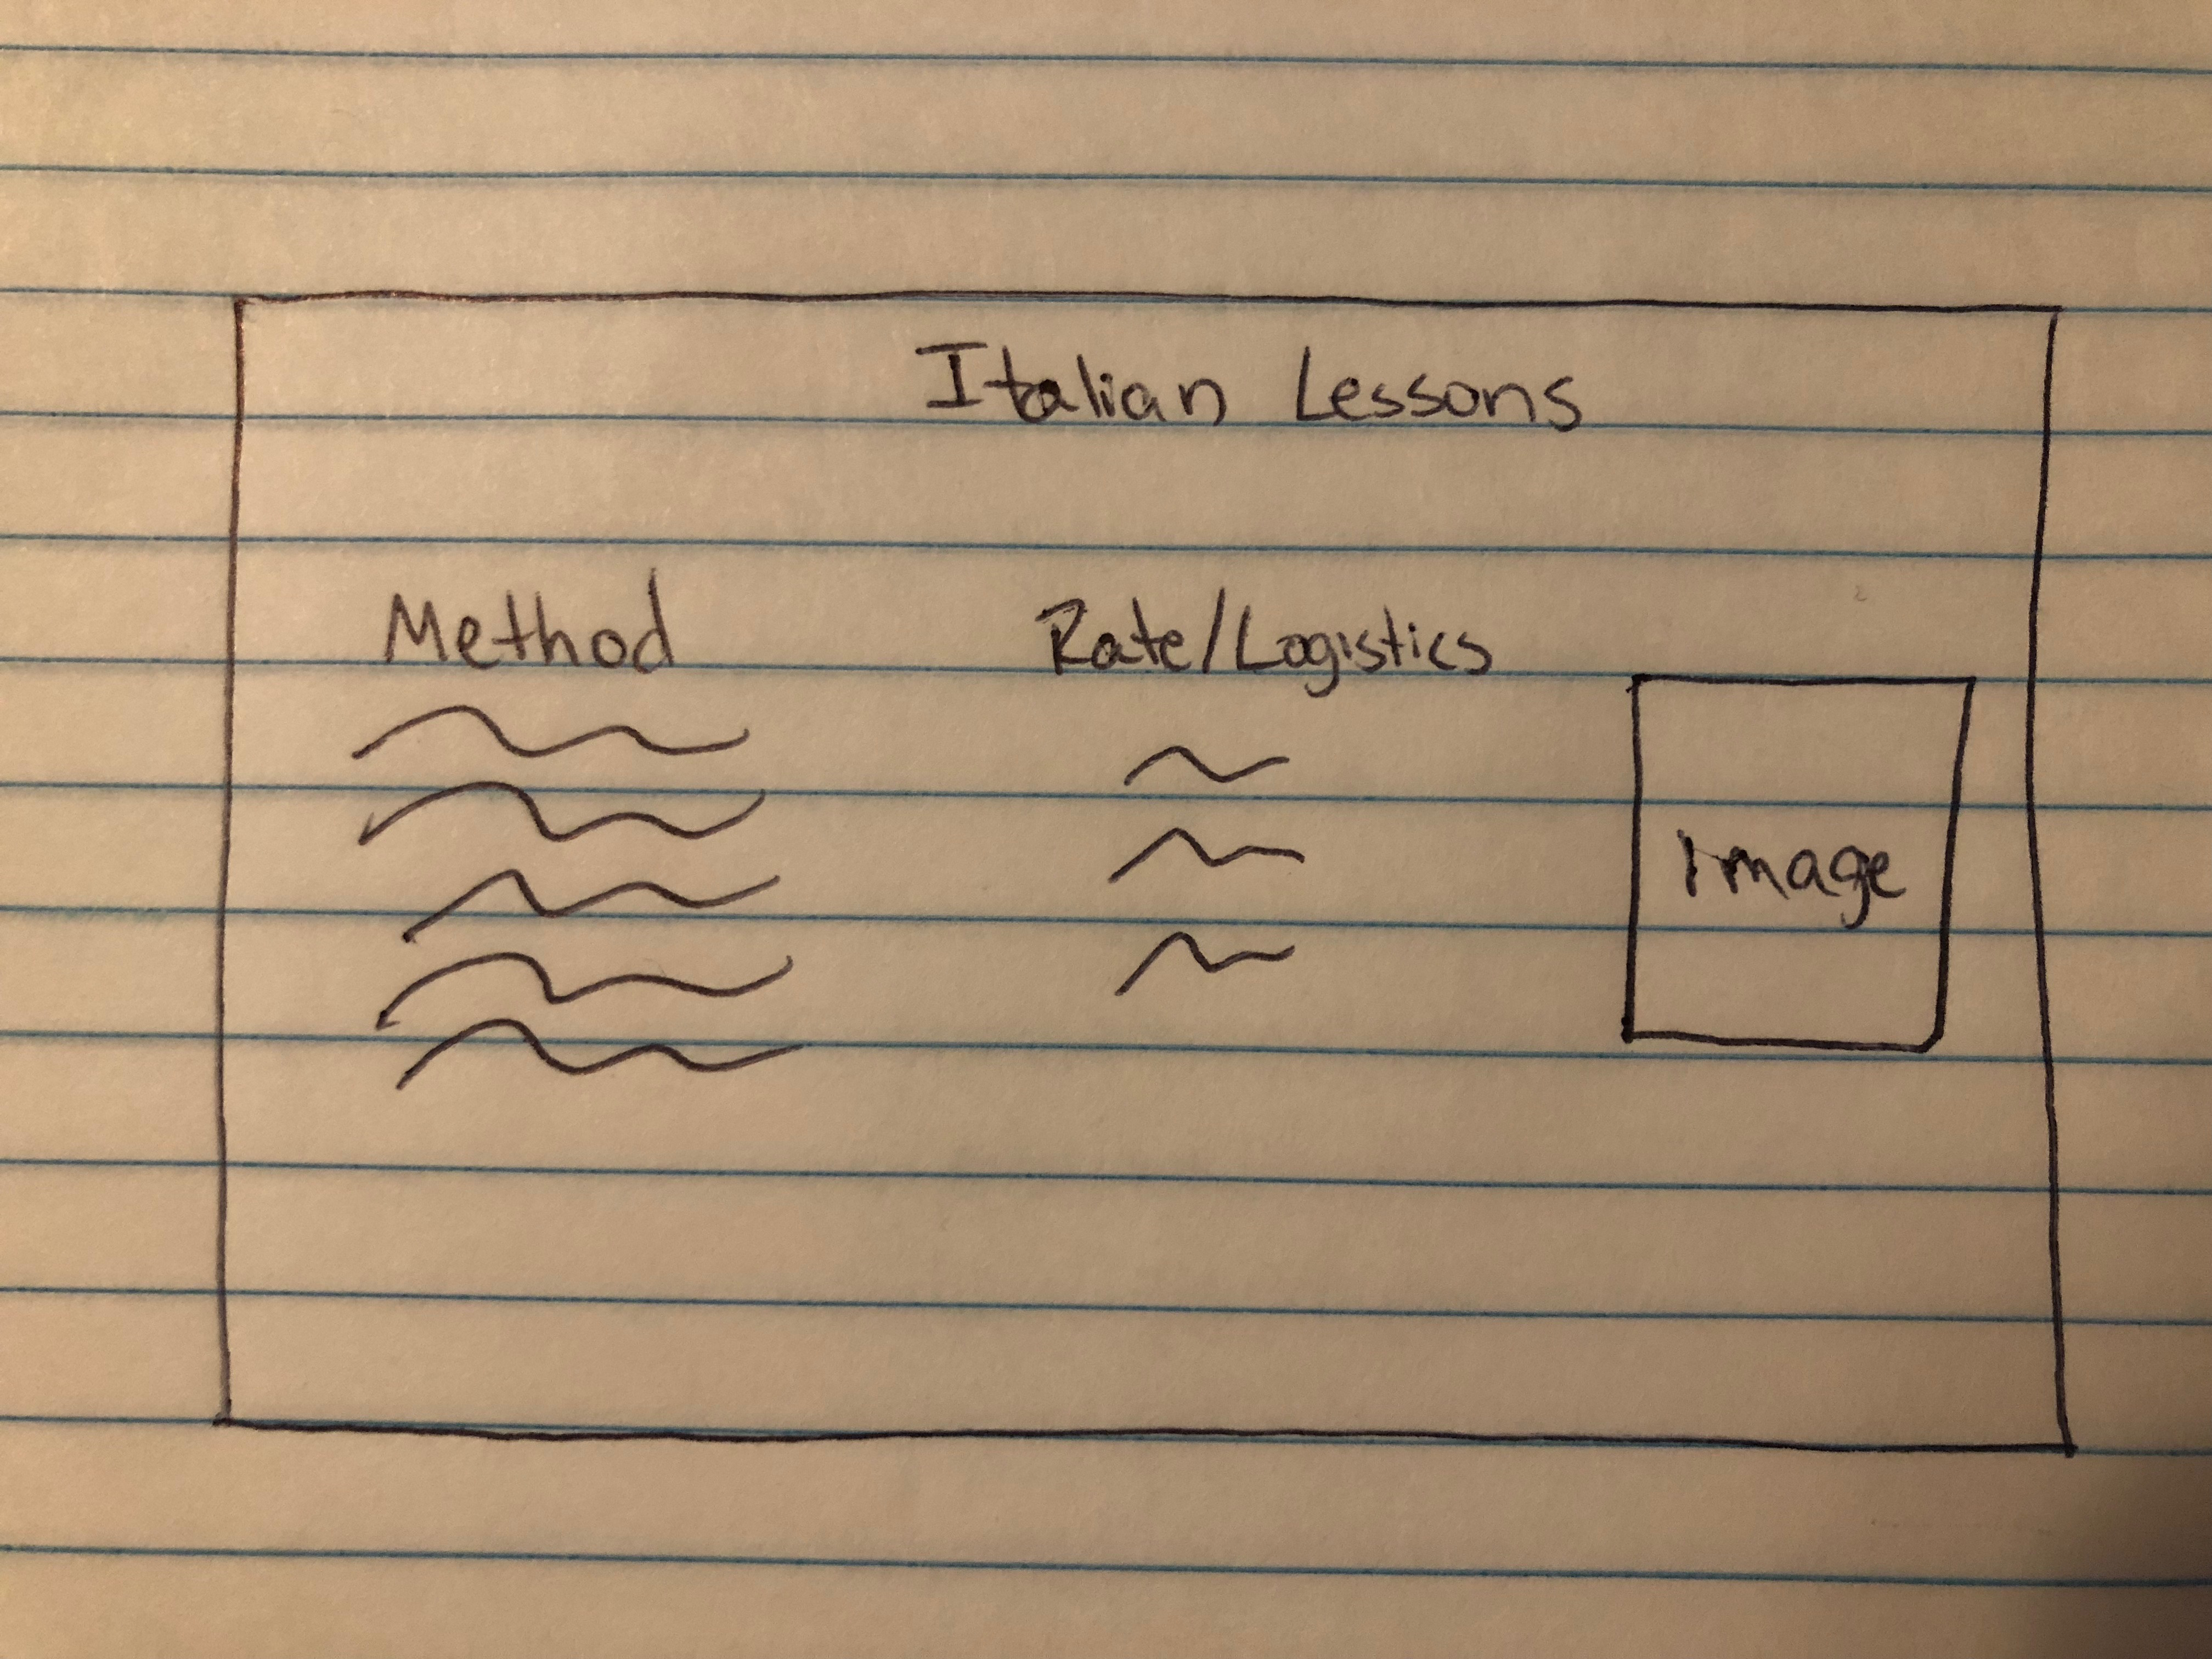 Italian Lessons
Method
Rate/Logistics
Image